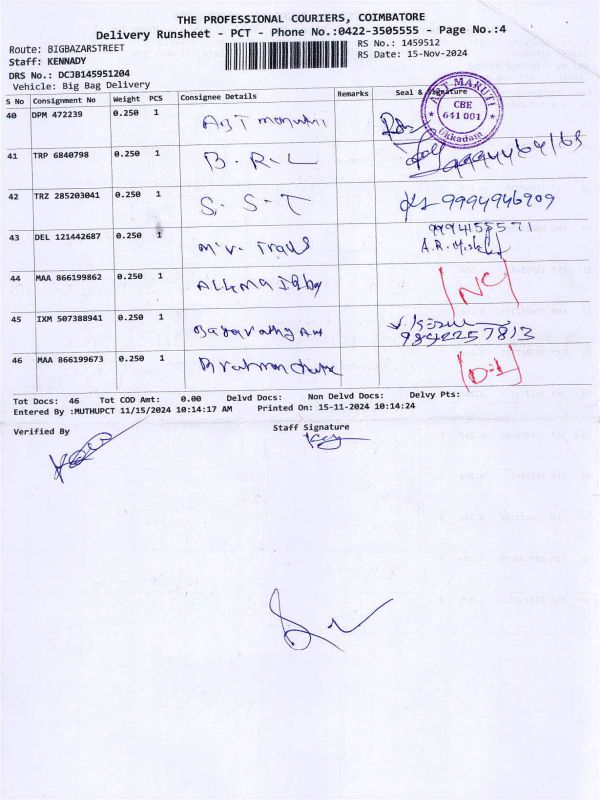 THE PROFESSIONAL COURIERS, COIMBATORE
Delivery Runsheet - PCT - Phone No.:0422-3505555 - Page No.:4
Route: BIGBAZARSTREET
RS No.: 1459512
Staff: KENNADY
RS Date: 15-Nov-2024
DRS No.: DCJB145951204
Vehicle: Big Bag Delivery
S No Consignment No Weight PCS Consignee Details Remarks Seal & Signature
40 DPM 472239 0.250 1
CBE
641 001
Ukkadam
41 TRP 6840798 0.250 1 B.R.L
42 TRZ 285203041 0.250 1 S.S.T 9994946909
43 DEL 121442687 0.250 1 M.V. Trads
44 MAA 866199862 0.250 1 NC
45 IXM 507388941 0.250 1 9842257813
46 MAA 866199673 0.250 1
Tot Docs: 46 Tot COD Amt: 0.00 Delvd Docs: Non Delvd Docs: Delvy Pts:
Entered By :MUTHUPCT 11/15/2024 10:14:17 AM Printed On: 15-11-2024 10:14:24
Verified By Staff Signature